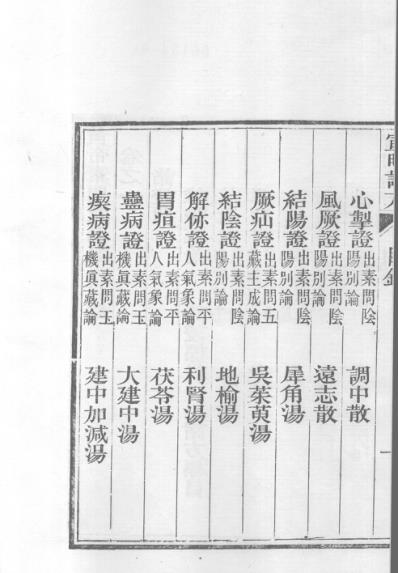 心掣證 出素問陰陽別論 調中散
風厥證 出素問陰陽別論 遠志散
結陽證 出素問陰陽別論 犀角湯
厥疝證 出素問五藏生成論 吳茱萸湯
結陰證 出素問陰陽別論 地榆湯
解㑊證 出素問平人氣象論 利腎湯
胃疸證 出素問平人氣象論 茯苓湯
蠱病證 出素問玉機眞藏論 大建中湯
瘈病證 出素問玉機眞藏論 建中加減湯